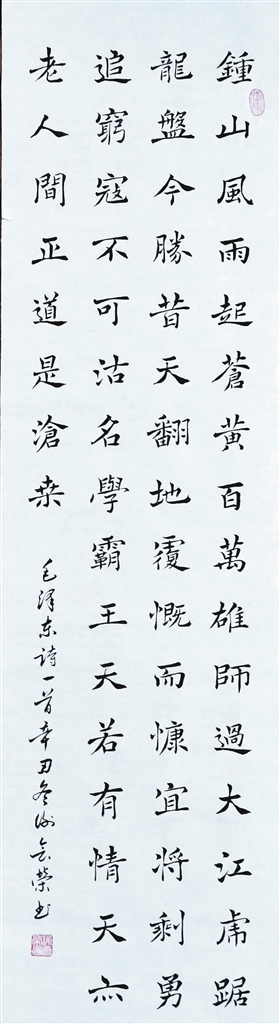 鍾山風雨起蒼黃百萬雄師過大江虎踞
龍盤今勝昔天翻地覆慨而慷宜將剩勇
追窮寇不可沽名學霸王天若有情天亦
老人間正道是滄桑
毛澤東詩一首辛丑冬湘玄榮書